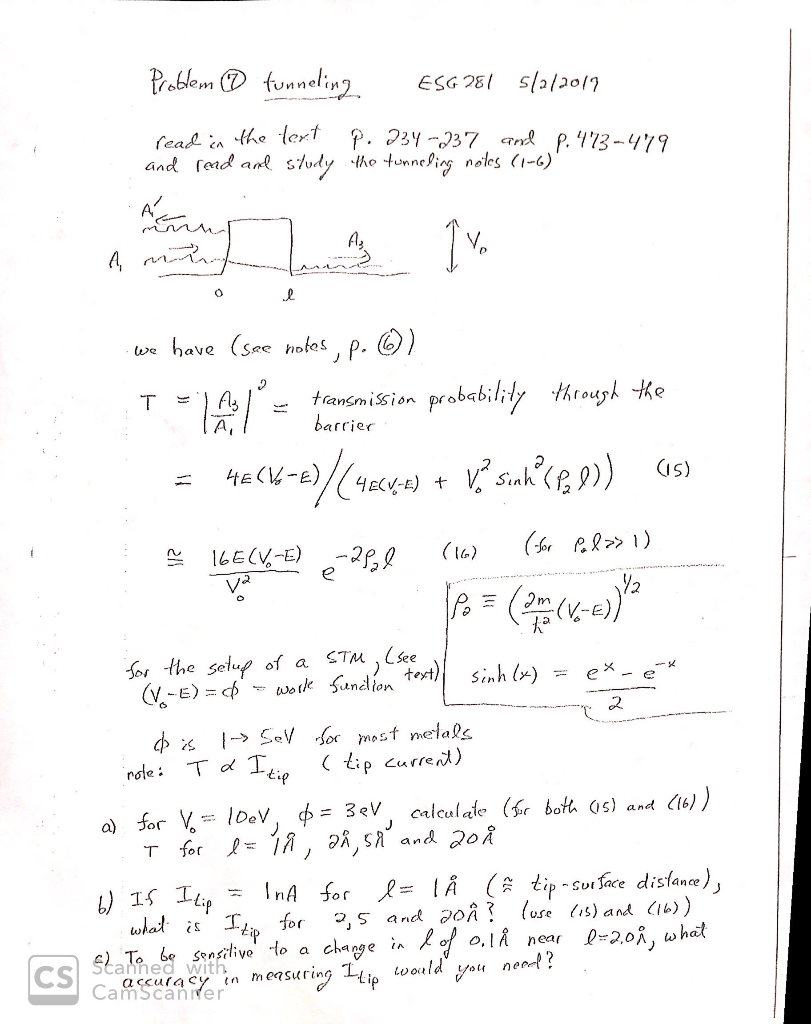 Problem ⑦ tunneling ESG 281 5/2/2019
read in the text p. 234-237 and p. 473-479
and read and study the tunneling notes (1-6)
A'
A₁ A₃ V₀
0 l
we have (see notes, p. ⑥)
T = |A₃/A₁|² = transmission probability through the
barrier
= 4E(V₀-E)/(4E(V₀-E) + V₀² sinh²(ρ₂l)) (15)
≅ 16E(V₀-E)/V₀² e^(-2ρ₂l) (16) (for ρ₂l>>1)
ρ₂ ≡ (2m/ħ² (V₀-E))^(1/2)
sinh(x) = (e^x - e^-x)/2
for the setup of a STM, (see
text)
(V₀-E) = ϕ = work function
ϕ is 1→5eV for most metals
note: T α I_tip (tip current)
a) for V₀ = 10eV, ϕ = 3eV, calculate (for both (15) and (16))
T for l = 1Å, 2Å, 5Å and 20Å
b) If I_tip = 1nA for l = 1Å (≅ tip-surface distance),
what is I_tip for 2, 5 and 20Å? (use (15) and (16))
c) To be sensitive to a change in l of 0.1Å near l=2.0Å, what
accuracy in measuring I_tip would you need?
CS Scanned with
CamScanner